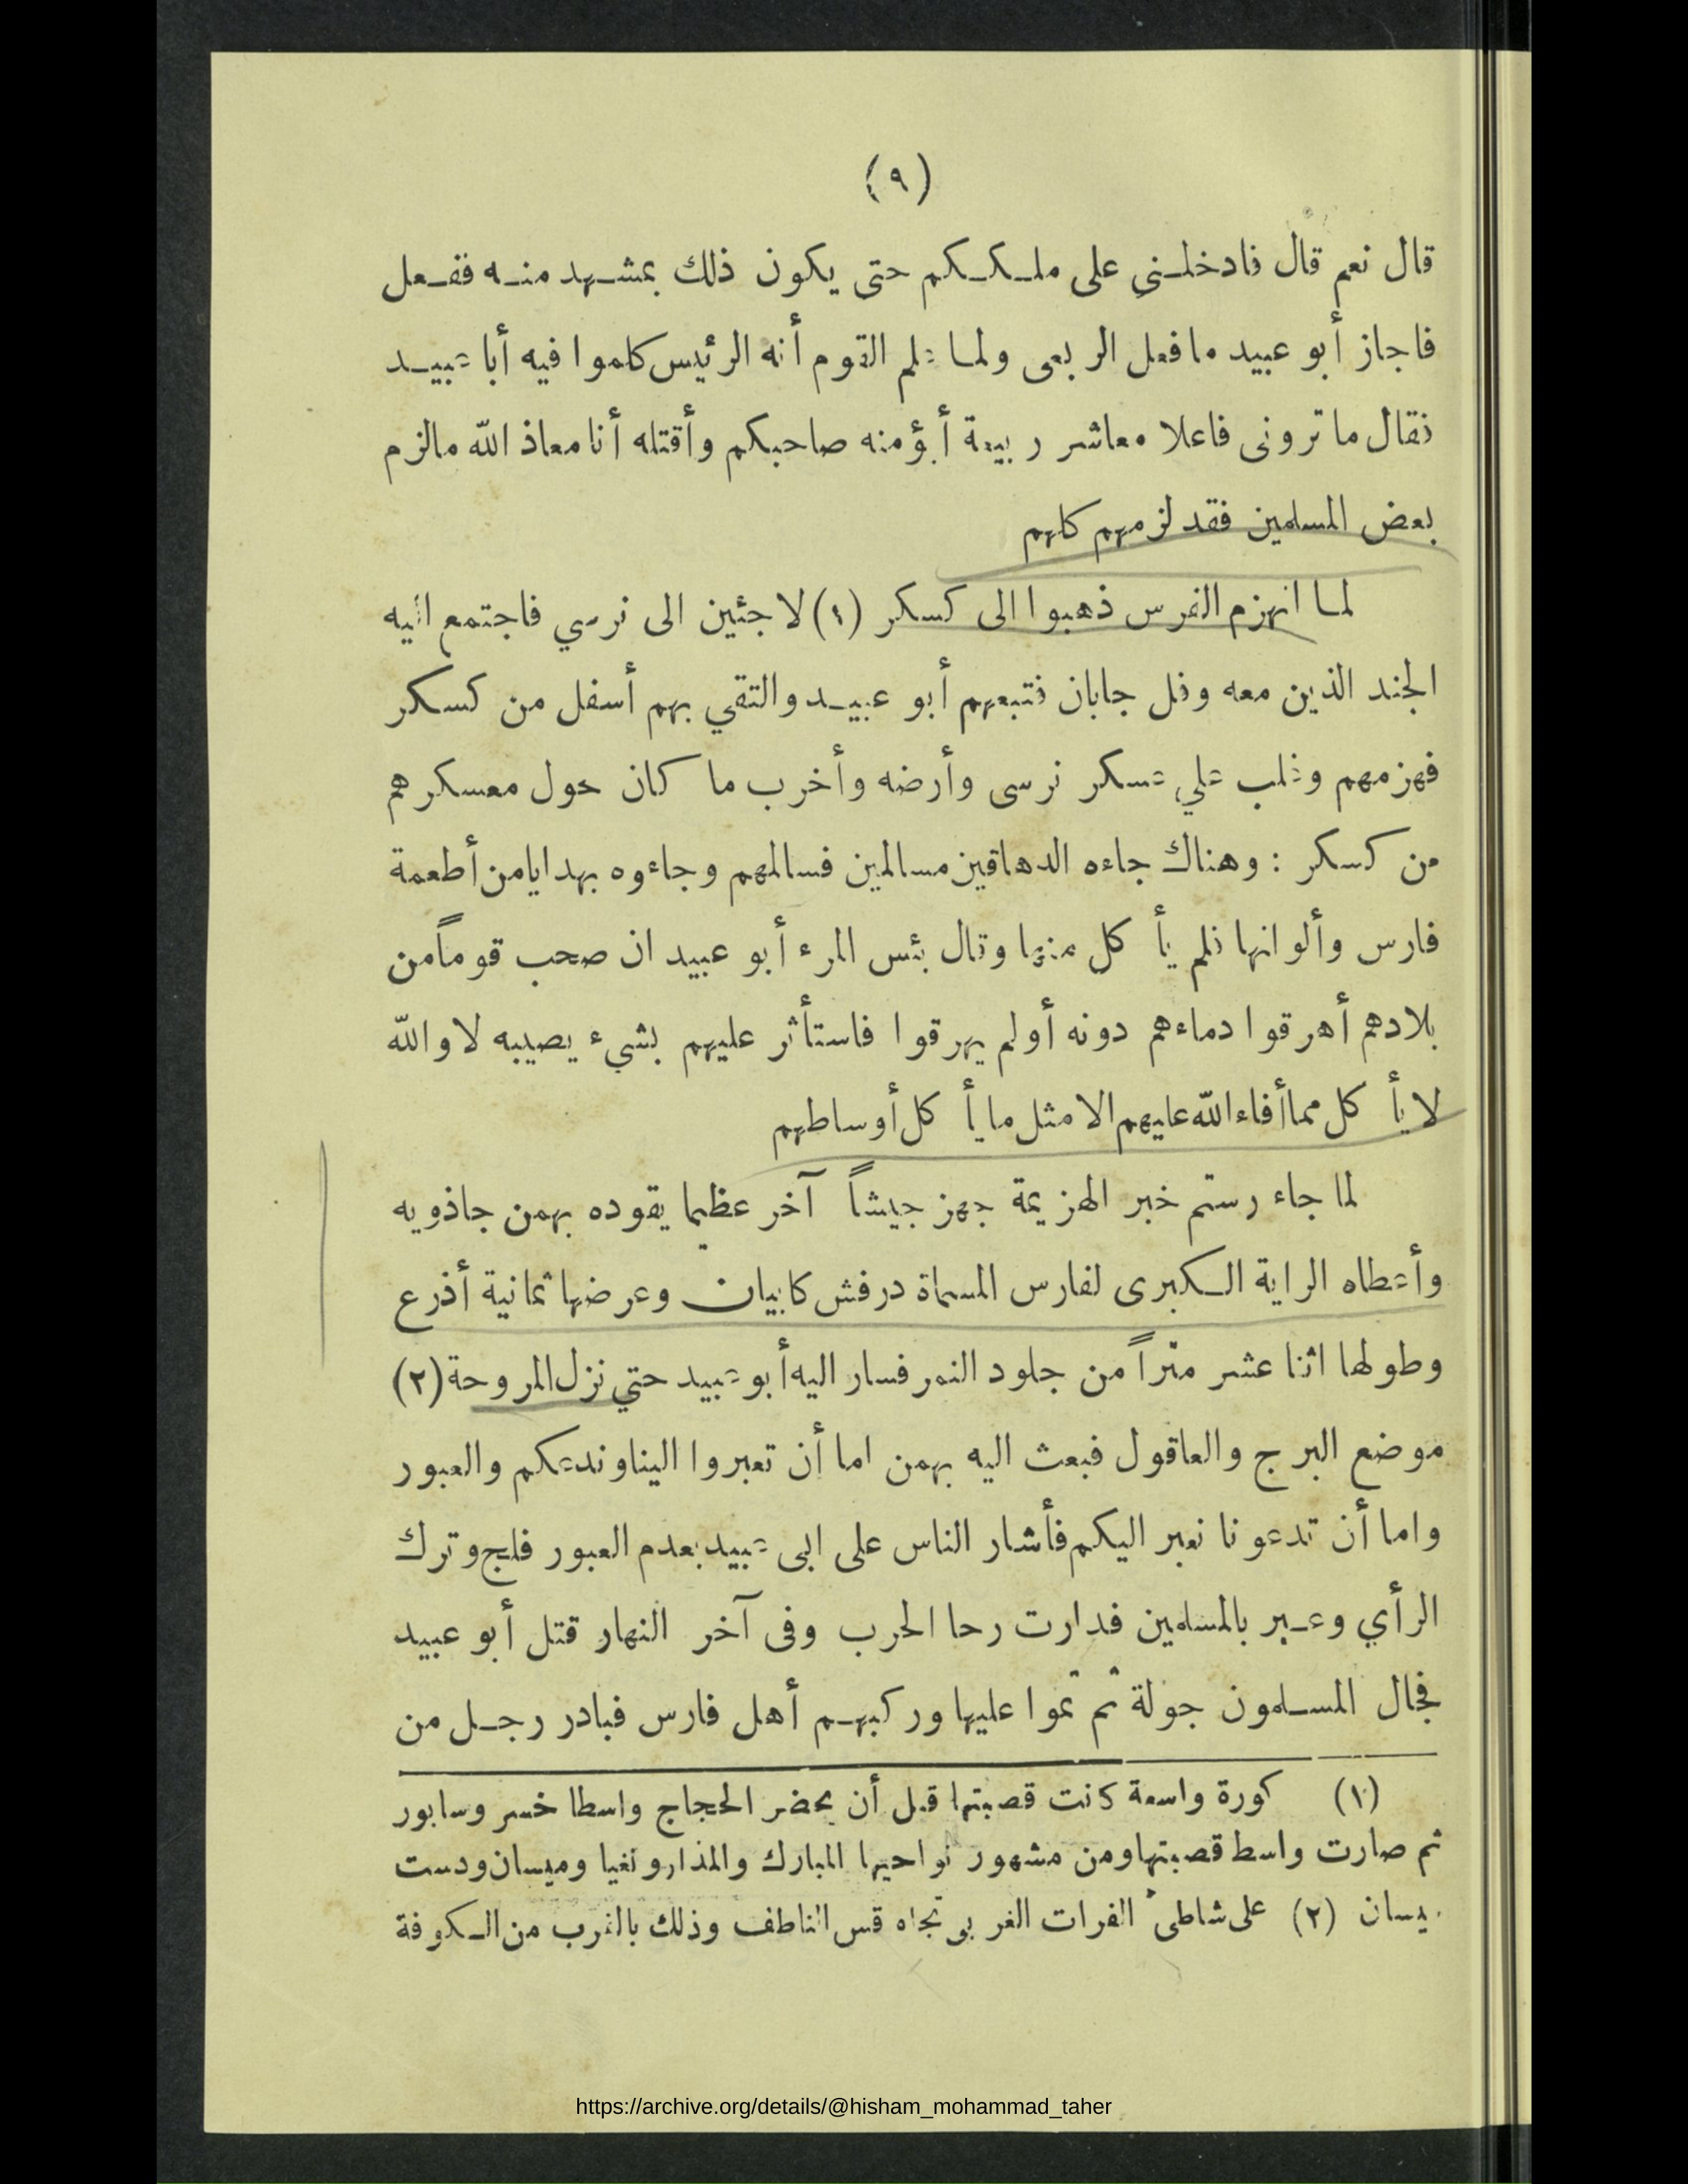 (٩)
قال نعم قال فادخلني على ملككم حتى يكون ذلك بمشهد منه ففعل
فاجاز أبو عبيد ما فعل الربعى ولما علم القوم أنه الرئيس كلموا فيه أبا عبيد
فقال ما ترونى فاعلا معاشر ربيعة أيؤمنه صاحبكم وأقتله أنا معاذ الله ما لزم
بعض المسلمين فقد لزمهم كلهم
لما انهزم الفرس ذهبوا الى كسكر (١) لاجئين الى نرسي فاجتمع اليه
الجند الذين معه وفل جابان فتبعهم أبو عبيد والتقي بهم أسفل من كسكر
فهزمهم وغلب علي عسكر نرسى وأرضه وأخرب ما كان حول معسكرهم
من كسكر : وهناك جاءه الدهاقين مسالمين فسالمهم وجاءوه بهدايا من أطعمة
فارس وألوانها فلم يأ كل منها وقال بئس المرء أبو عبيد ان صحب قوماً من
بلادهم أهرقوا دماءهم دونه أو لم يهرقوا فاستأثر عليهم بشيء يصيبه لا والله
لا يأ كل مما أفاء الله عليهم الا مثل ما يأ كل أوساطهم
لما جاء رستم خبر الهزيمة جهز جيشاً آخر عظيما يقوده بهمن جاذويه
وأعطاه الراية الكبرى لفارس المسماة درفش كابيان وعرضها ثمانية أذرع
وطولها اثنا عشر متراً من جلود النمر فسار اليه أبو عبيد حتي نزل المروحة (٢)
موضع البرج والعاقول فبعث اليه بهمن اما أن تعبروا الينا وندعكم والعبور
واما أن تدعونا نعبر اليكم فأشار الناس على ابى عبيد بعدم العبور فلج وترك
الرأي وعبر بالمسلمين فدارت رحا الحرب وفى آخر النهار قتل أبو عبيد
فجال المسلمون جولة ثم تموا عليها وركبهم أهل فارس فبادر رجل من
(١) كورة واسعة كانت قصبتها قبل أن يحضر الحجاج واسطا خسر وسابور
ثم صارت واسط قصبتها ومن مشهور نواحيها المبارك والمذار ونغيا وميسان ودست
يسان (٢) على شاطئ الفرات الغربى تجاه قس الناطف وذلك بالقرب من الكوفة
https://archive.org/details/@hisham_mohammad_taher